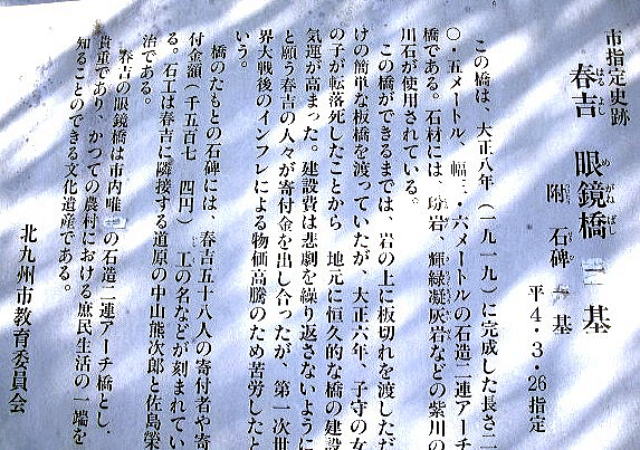 市指定史跡
春吉 眼鏡橋 基
はる よし め がね ばし
附 石碑 一基
平4・3・26指定
この橋は、大正八年(一九一九)に完成した長さ二
〇・五メートル 幅三・六メートルの石造二連アーチ
橋である。石材には、玢岩、輝緑凝灰岩などの紫川の
川石が使用されている。
この橋ができるまでは、岩の上に板切れを渡しただ
けの簡単な板橋を渡っていたが、大正六年、子守の女
の子が転落死したことから 地元に恒久的な橋の建設
気運が高まった。建設費は悲劇を繰り返さないように
と願う春吉の人々が寄付金を出し合ったが、第一次世
界大戦後のインフレによる物価高騰のため苦労したと
いう。
橋のたもとの石碑には、春吉五十八人の寄付者や寄
付金額(千五百七 四円) 工の名などが刻まれてい
る。石工は春吉に隣接する道原の中山熊次郎と佐島榮
治である。
春吉の眼鏡橋は市内唯 の石造二連アーチ橋とし
貴重であり、かつての農村における庶民生活の一端を
知ることのできる文化遺産である。
北九州市教育委員会